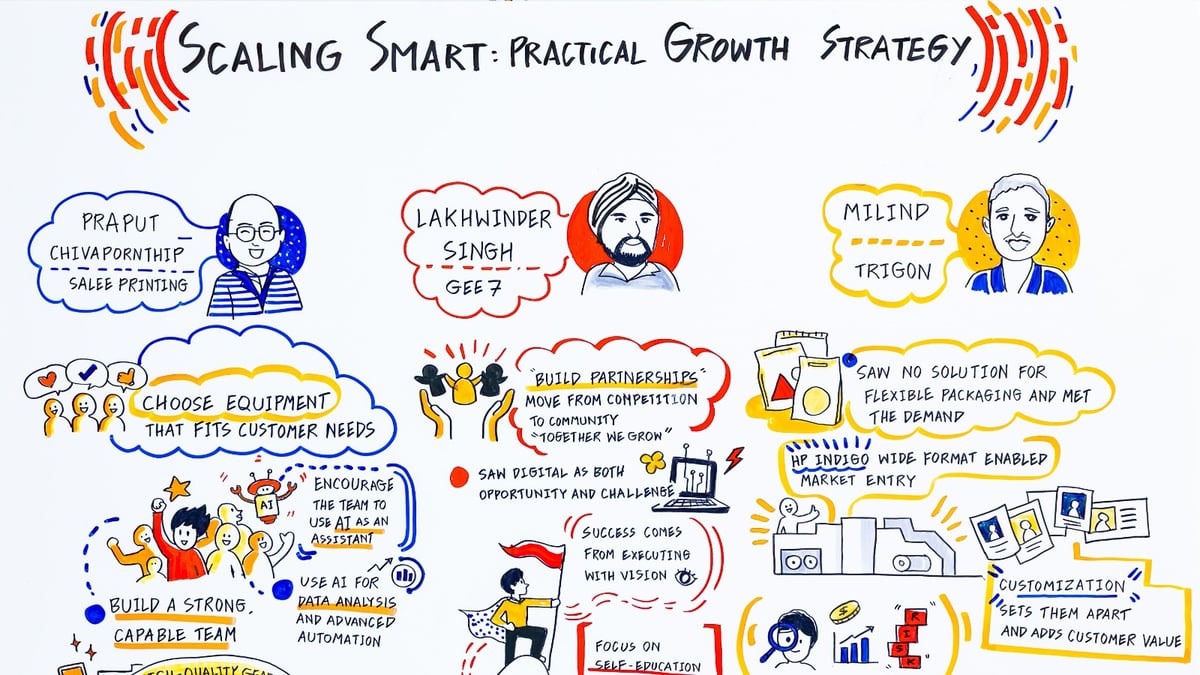 SCALING SMART: PRACTICAL GROWTH STRATEGY
PRAPUT
CHIVAPORNTHIP
SALEE PRINTING
CHOOSE EQUIPMENT
THAT FITS CUSTOMER NEEDS
AI
ENCOURAGE
THE TEAM TO
USE AI AS AN
ASSISTANT
BUILD A STRONG,
CAPABLE TEAM
USE AI FOR
DATA ANALYSIS
AND ADVANCED
AUTOMATION
LAKHWINDER
SINGH
GEE 7
"BUILD PARTNERSHIPS"
MOVE FROM COMPETITION
TO COMMUNITY
"TOGETHER WE GROW"
SAW DIGITAL AS BOTH
OPPORTUNITY AND CHALLENGE
SUCCESS COMES
FROM EXECUTING
WITH VISION
FOCUS ON
SELF-EDUCATION
MILIND
TRIGON
SAW NO SOLUTION FOR
FLEXIBLE PACKAGING AND MET
THE DEMAND
HP INDIGO WIDE FORMAT ENABLED
MARKET ENTRY
CUSTOMIZATION
SETS THEM APART
AND ADDS CUSTOMER VALUE
RISK